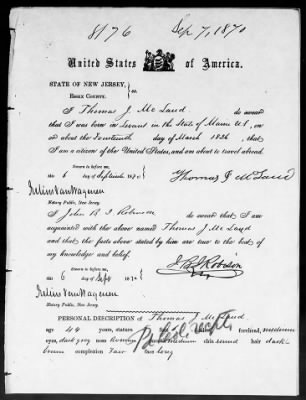 8176
Sep 7, 1870
United States of America.
STATE OF NEW JERSEY,
ESSEX COUNTY.
ss
I Thomas J. McLaud do swear
that I was born in in the State of Maine U.S., on
or about the Fourteenth day of March 1826 that
I am a citizen of the United States, and am about to travel abroad.
Sworn to before me,
this 6 day of September 1870
Thomas J McLaud
Notary Public, New Jersey.
I John B I Robison do swear that I am
acquainted with the above named Thomas J. McLaud
and that the facts above stated by him are true to the best of
my knowledge and belief.
Sworn to before me,
this 6 day of Sept 1870
Notary Public, New Jersey.
PERSONAL DESCRIPTION of Thomas J. McLaud
age 44 years, stature forehead, medium
eyes, dark grey nose Roman medium chin round hair dark
brown complexion Fair face long